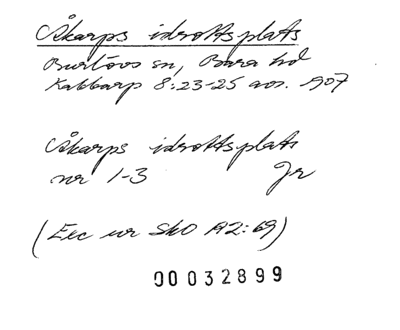 Åkarps idrottsplats
Burlövs sn, Bara hd
Kabbarp 8:23-25 avs. 1907
Åkarps idrottsplats
nr 1-3 Jr
(Exc ur SkO A2:69)
00032899